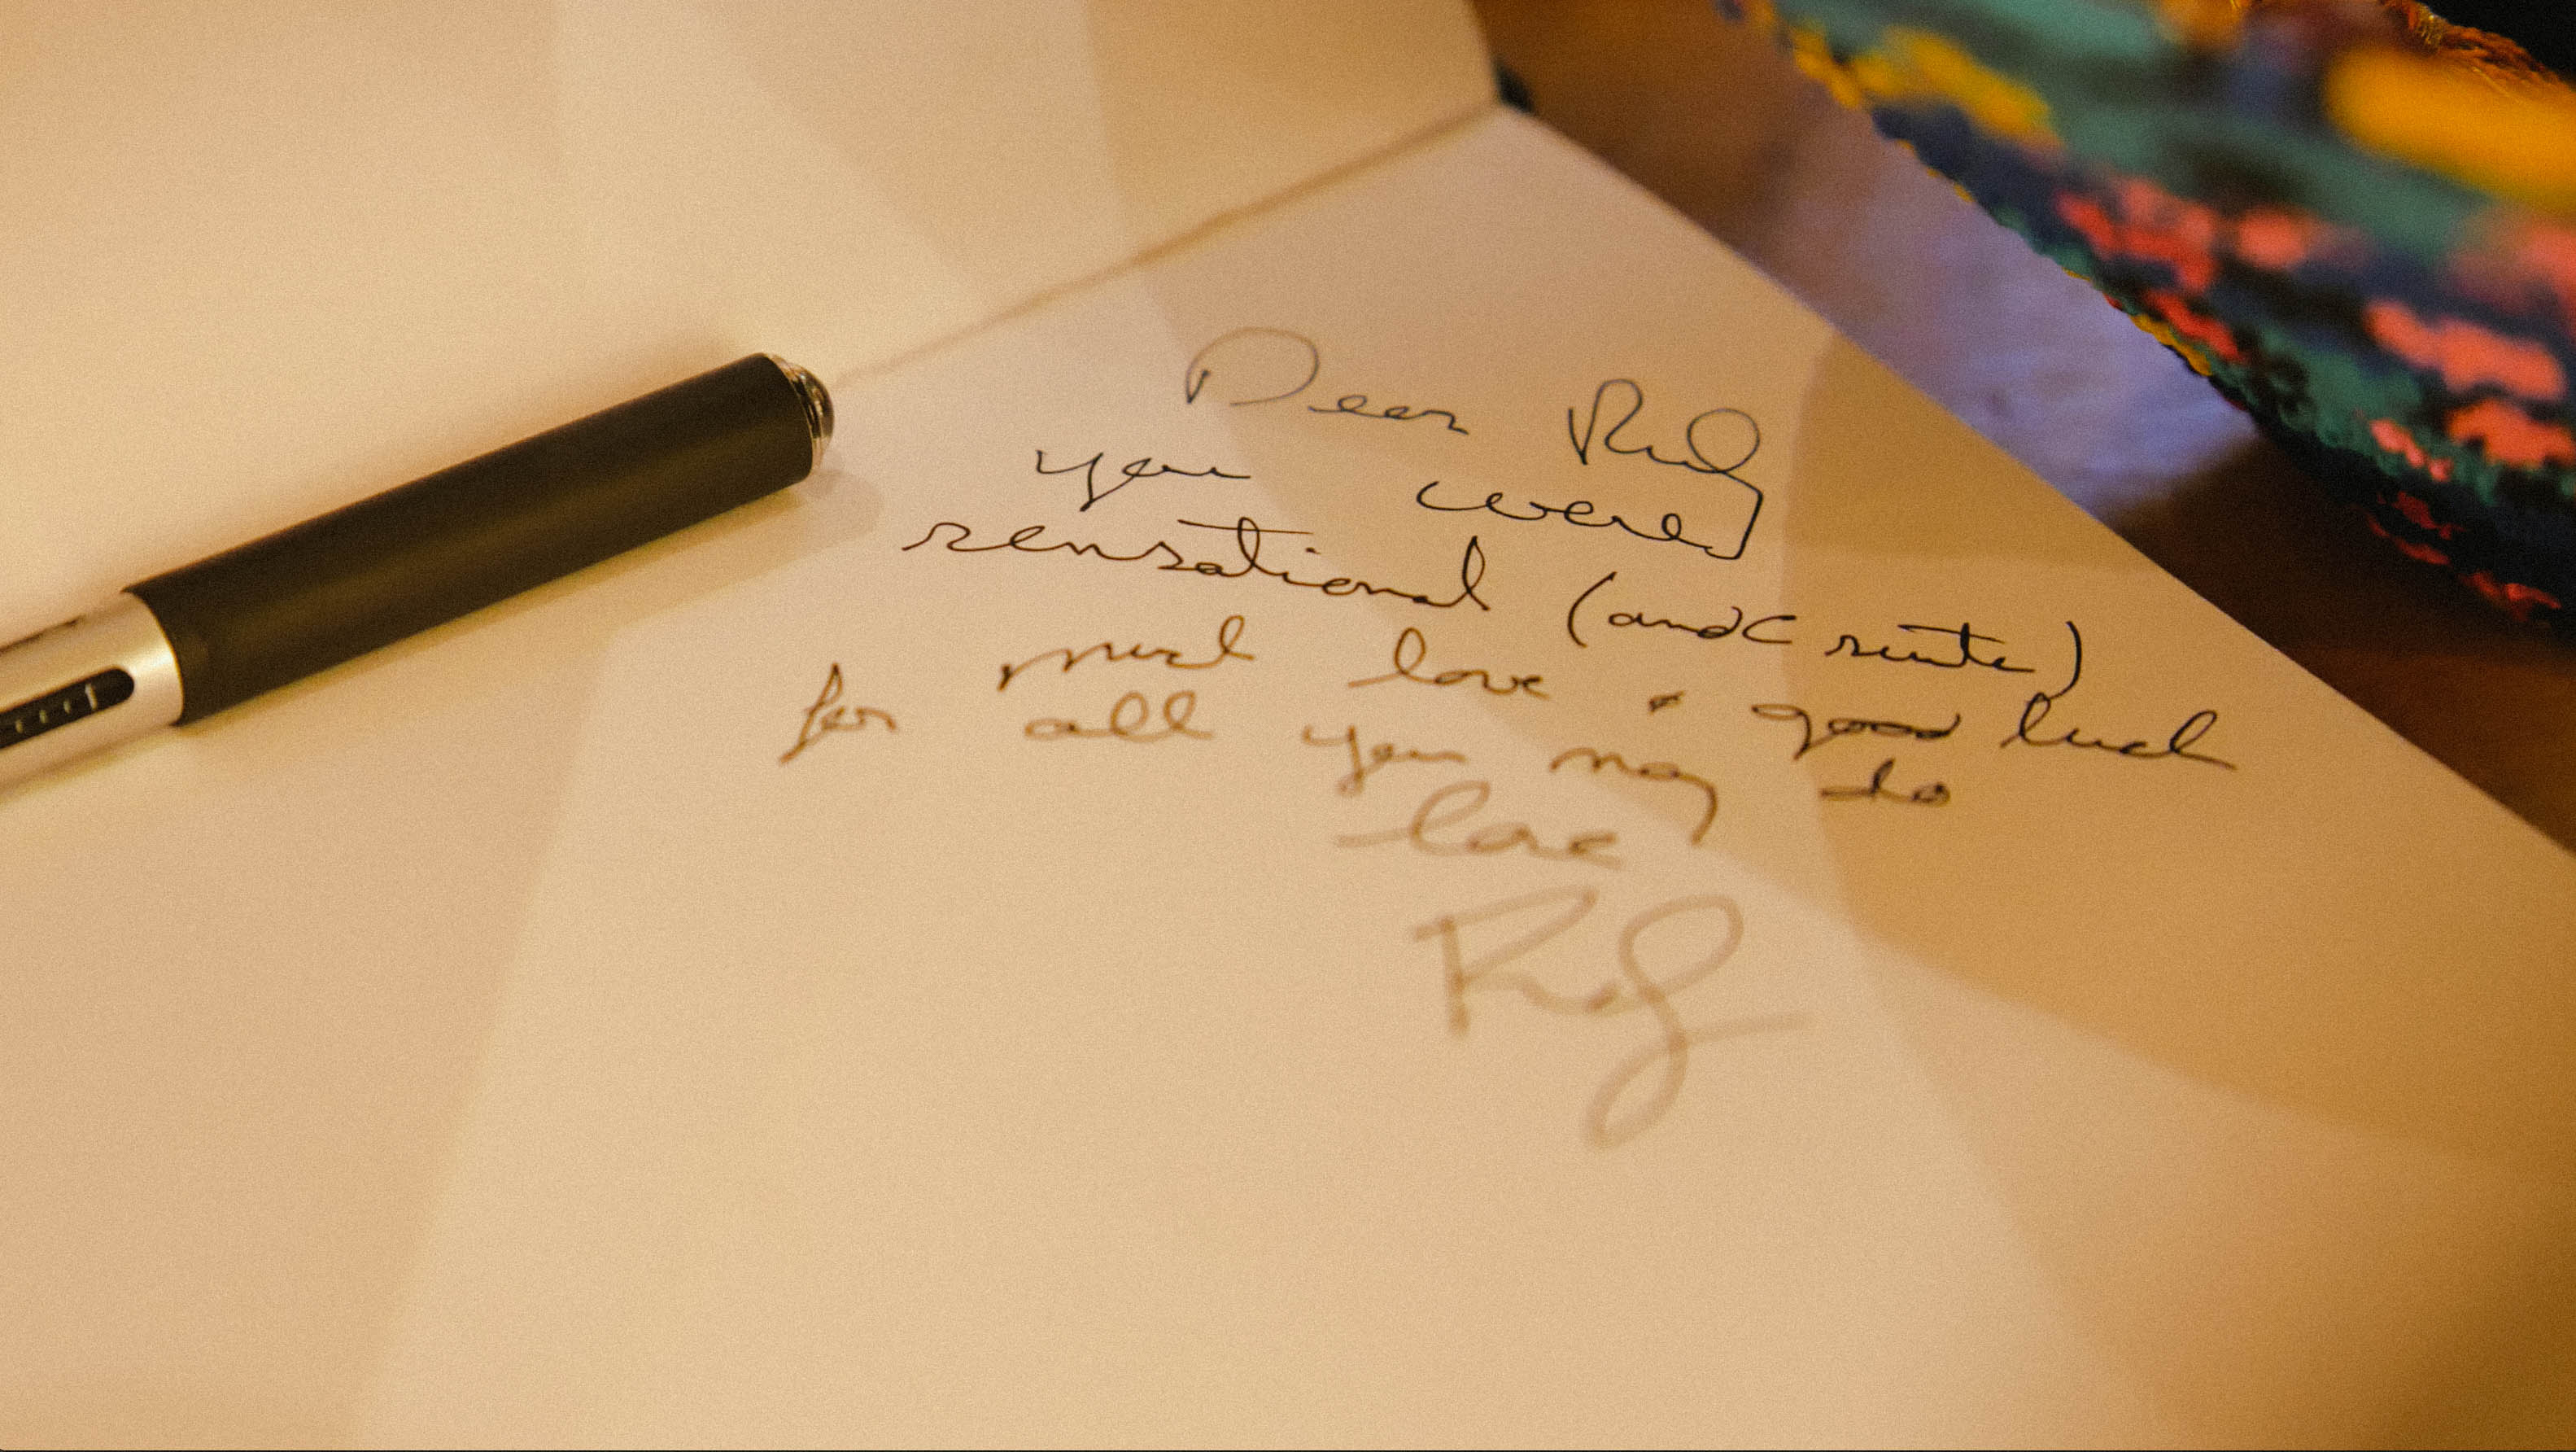 Dear Rudy
you were
sensational (and cute)
much love & good luck
for all you may do
love
Rudy